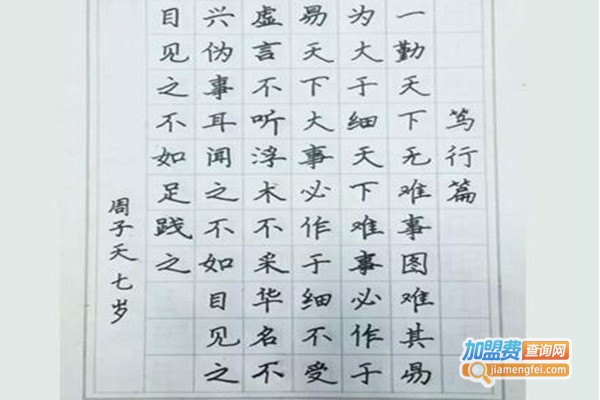 笃行篇
一勤天下无难事图难其易
为大于细天下难事必作于
易天下大事必作于细不受
虚言不听浮术不采华名不
兴伪事耳闻之不如目见之
目见之不如足践之
周子天七岁
加盟费查询网
jiamengfei.com